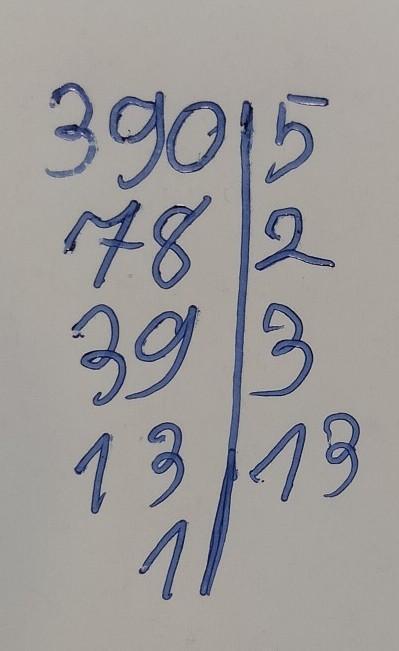 390 | 5
78 | 2
39 | 3
13 | 13
1 |